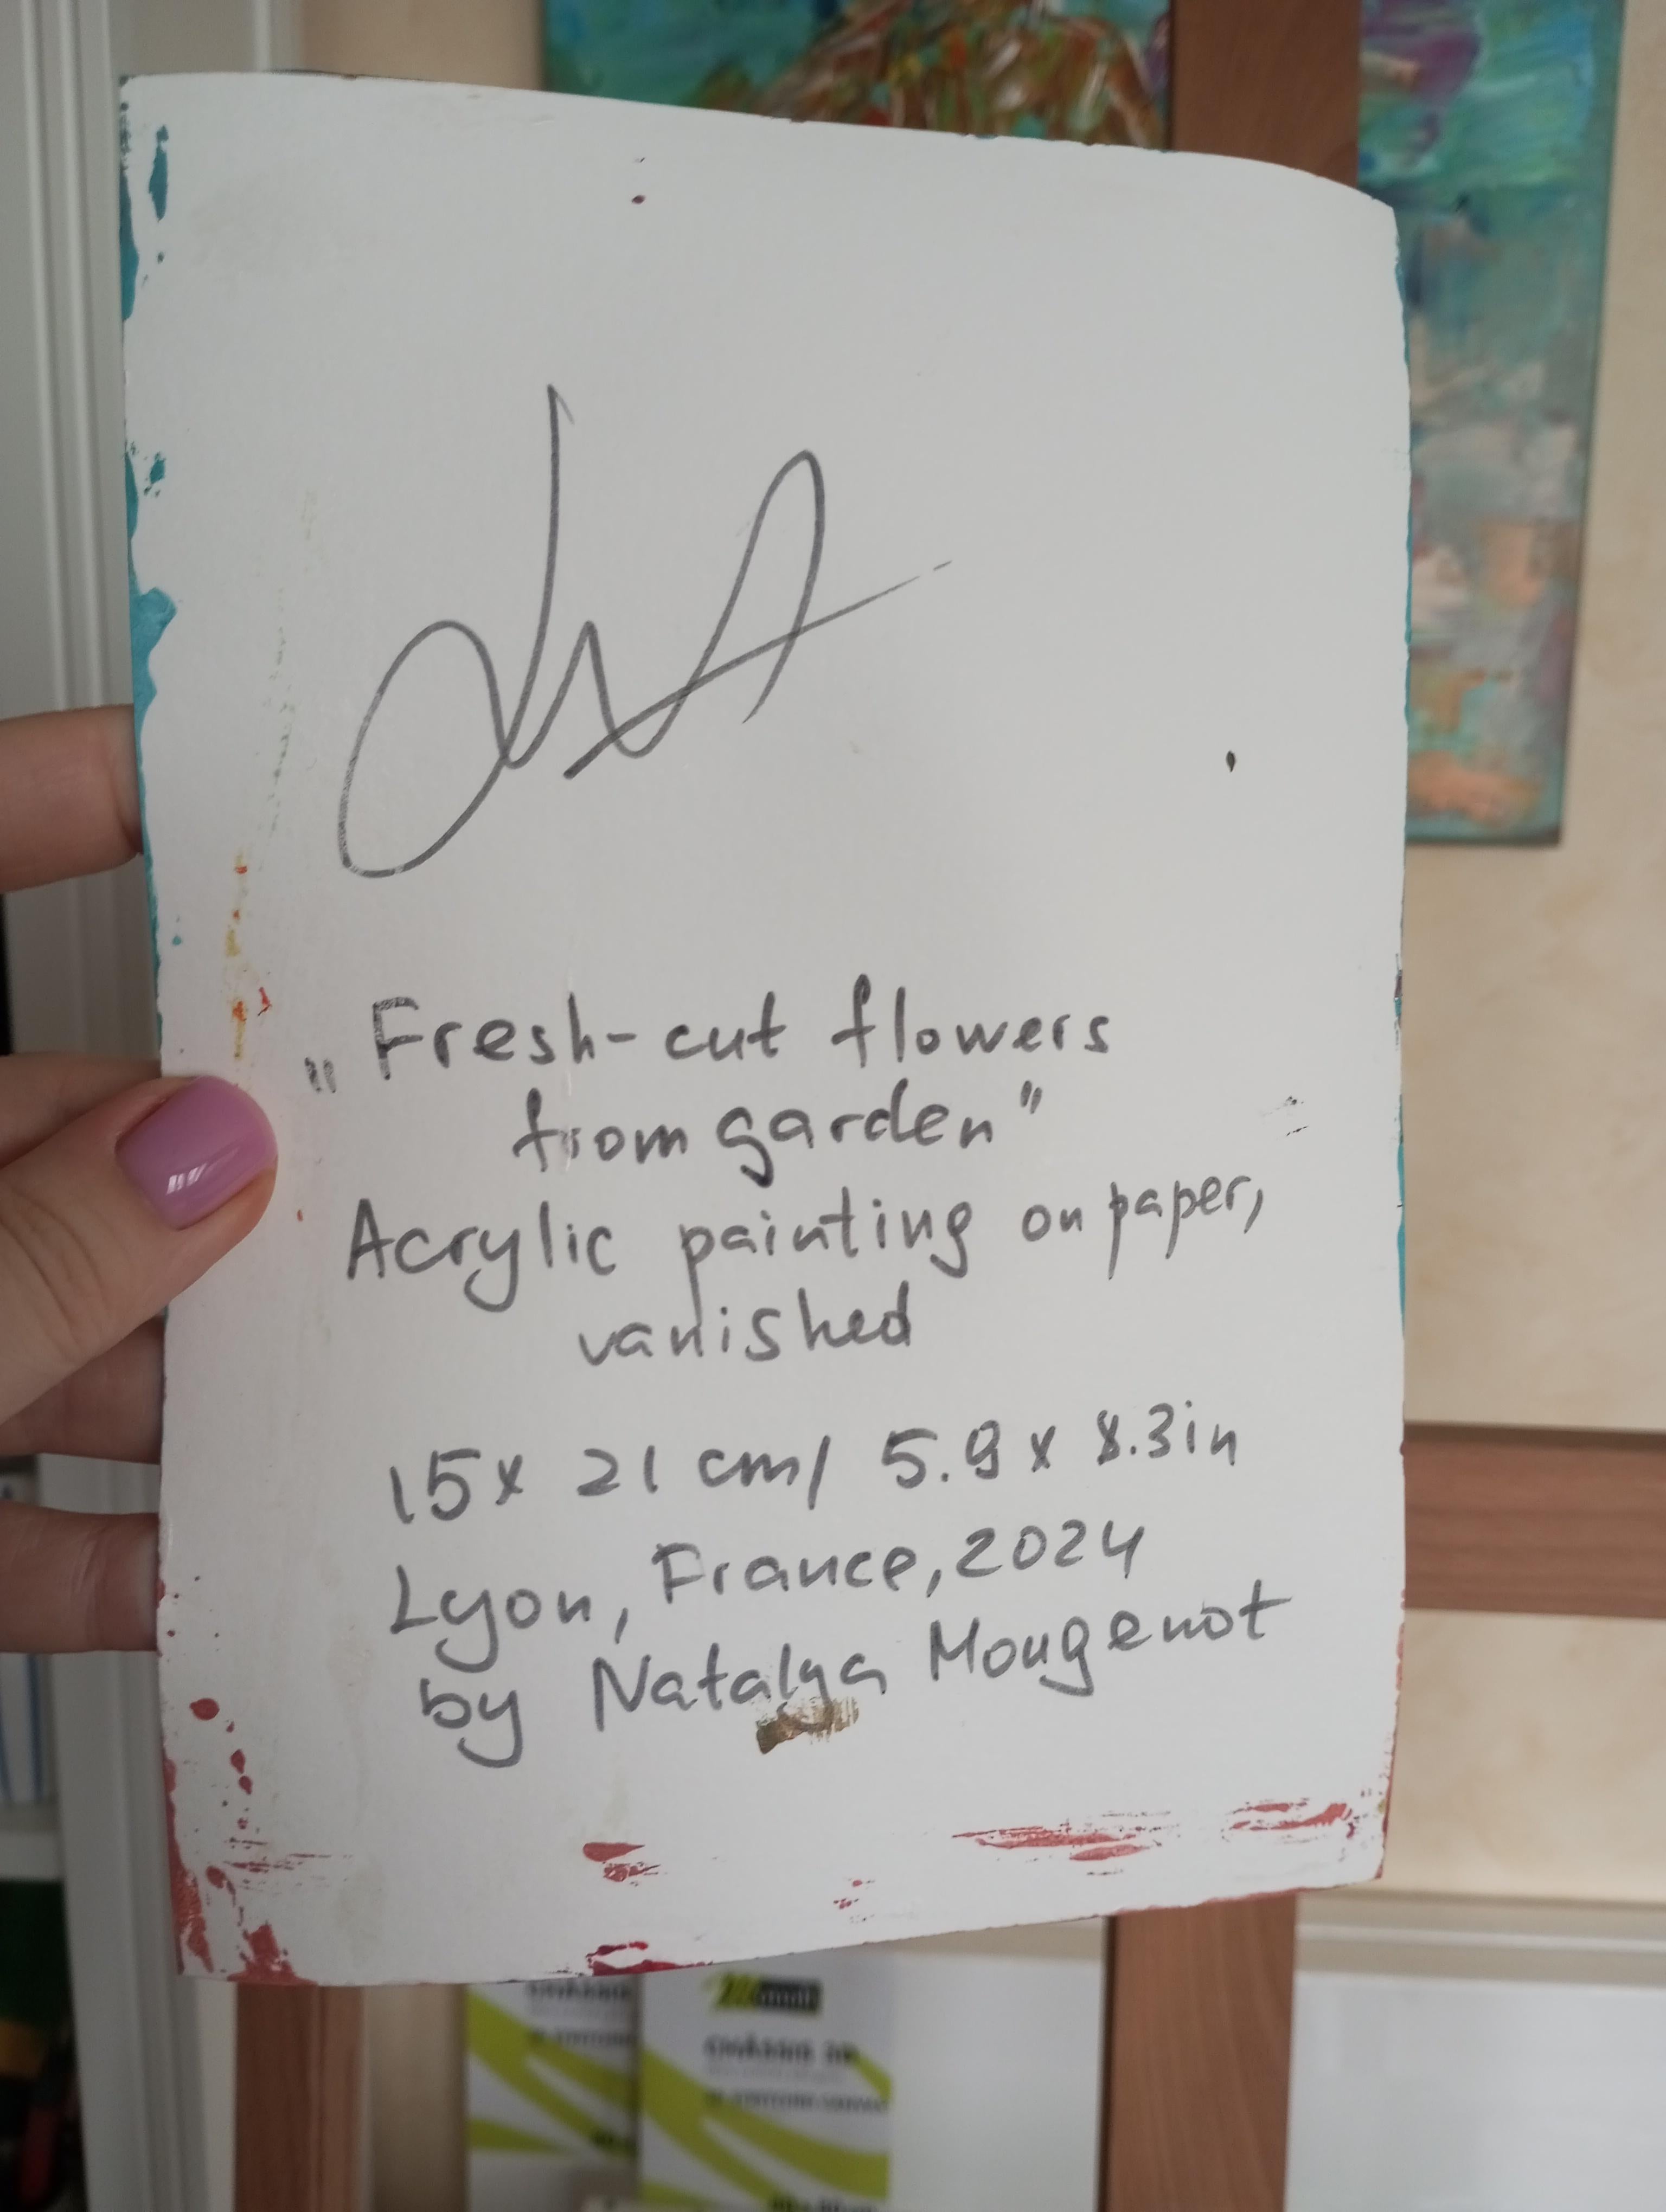 „Fresh-cut flowers
from garden"
Acrylic painting on paper,
vanished
15x 21 cm/ 5.9 x 8.3in
Lyon, France, 2024
by Natalya Mougenot
CHÂSSIS 3D